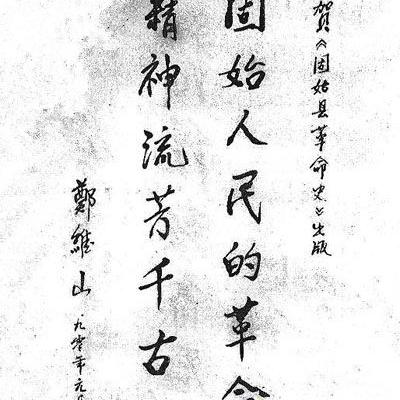 贺《固始县革命史》出版
固始人民的革命
精神流芳千古
郑维山
九零年元月